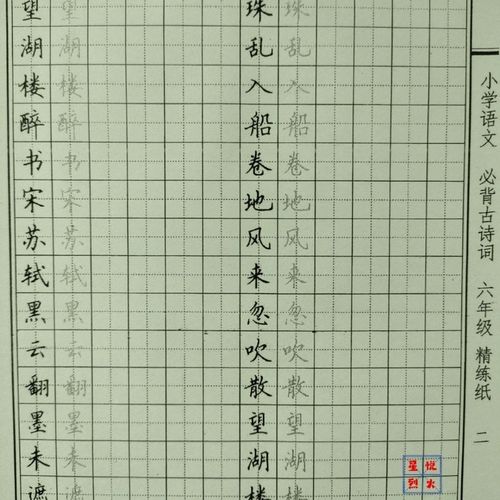 望湖楼醉书宋苏轼黑云翻墨未遮
望湖楼醉书宋苏轼黑云翻墨未遮
珠乱入船卷地风来忽吹散望湖楼
珠乱入船卷地风来忽吹散望湖楼
小学语文 必背古诗词 六年级 精练纸 二